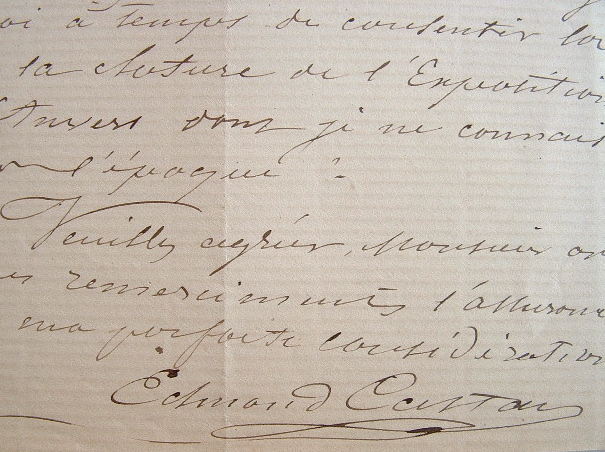 oi à temps de consentir lor
la cloture de l'Exposition
Anvers dont je ne connais
l'époque ?
Veuillez agréer, Monsieur
es remerciments l'assuranc
ma parfaite considération
Edmond Castan